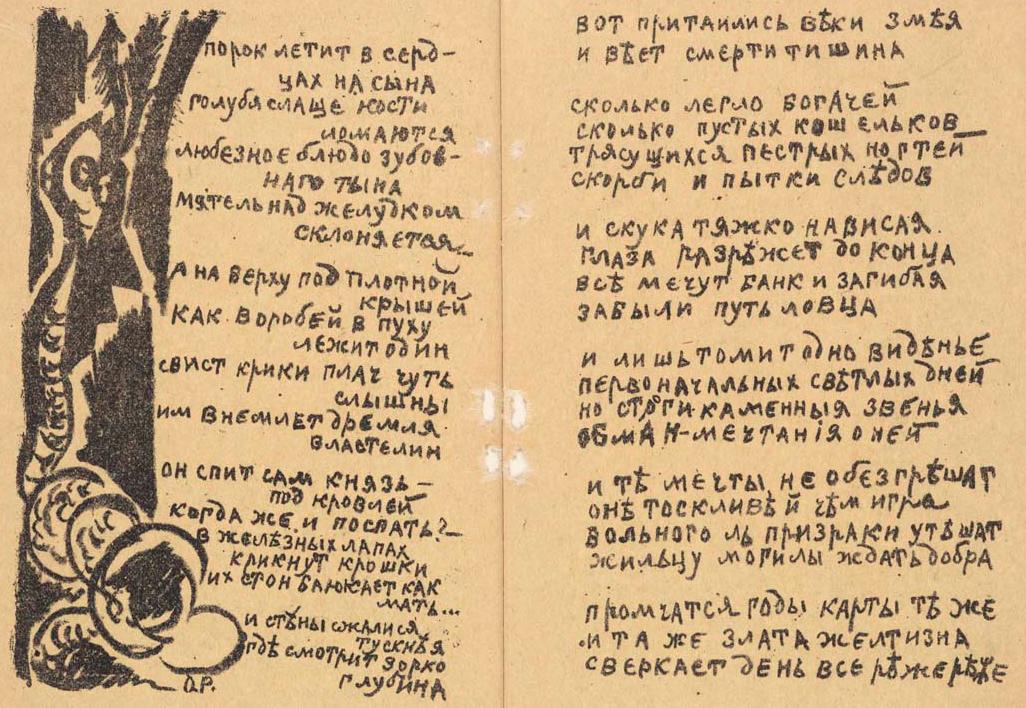 порок летит в серд-
цах на сына
голубя слаще кости
ломаются
любезное блюдо зубов-
наго тына
мятель над желудком
склоняется...
а на верху под плотной
крышей
как воробей в пуху
лежит один
свист крики плач чуть
слышны
им внемлет дремля
властелин
он спит сам князь —
под кровлей
когда же и поспать?—
в желѣзных лапах
крикнут крошки
их стон баюкает как
мать...
и стѣны сжалися
тускнѣя
гдѣ смотрит зорко
глубина
О.Р.
вот притаились вѣки змѣя
и вѣет смерти тишина
сколько легло богачей
сколько пустых кошельков
трясущихся пестрых ногтей
скорби и пытки слѣдов
и скука тяжко нависая
глаза разрѣжет до конца
всѣ мечут банк и загибая
забыли путь ловца
и лишь томит одно видѣнье
первоначальных свѣтлых дней
но строги каменныя звенья
обман-мечтанія о ней
и тѣ мечты не обезгрѣшат
онѣ тоскливѣй чѣм игра
больного ль призраки утѣшат
жильцу могилы ждать добра
промчатся годы карты тѣ же
и та же злата желтизна
сверкает день все рѣже рѣже